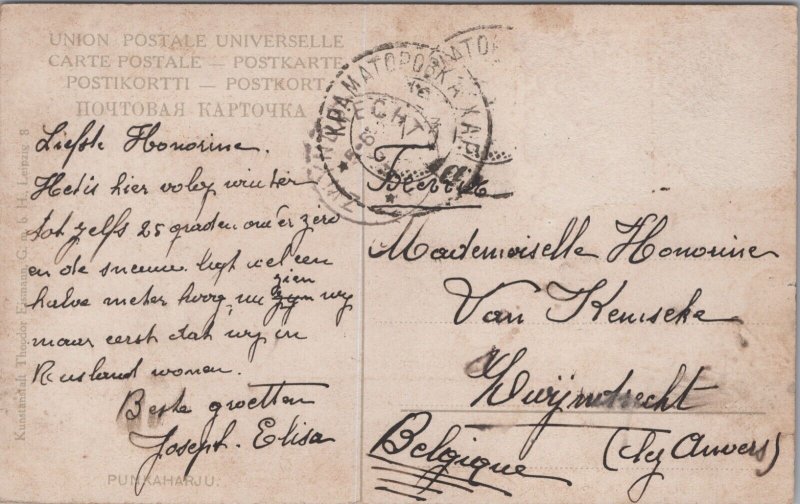 UNION POSTALE UNIVERSELLE
CARTE POSTALE — POSTKARTE
POSTIKORTTI — POSTKORT
ПОЧТОВАЯ КАРТОЧКА
Liefste Honorine.
Het is hier volop winter
tot zelfs 25 graden onder zero
en de sneeuw ligt wel een
halve meter hoog, nu zien wij
maar eerst dat wij in
Rusland wonen.
Beste groetten
Joseph. Elisa
PUNKAHARJU.
Kunstanstalt Theodor Eismann, G. m. b. H. Leipzig 8
КРАМАТОРОВКА ХАР
Mademoiselle Honorine
Van Kemseke
Zwijndrecht
(lez Anvers)
Belgique